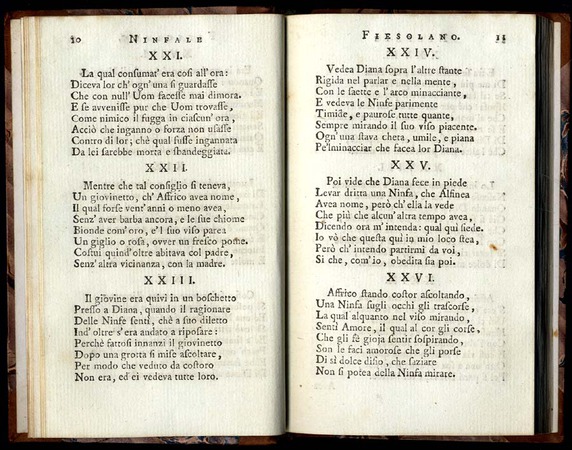 10 NINFALE
XXI.
La qual consumat' era così all' ora:
Diceva lor ch' ogn' una si guardasse
Che con null' Uom facesse mai dimora.
E se avvenisse pur che Uom trovasse,
Come nimico il fugga in ciascun' ora,
Acciò che inganno o forza non usasse
Contro di lor; chè qual fusse ingannata
Da lei sarebbe morta e sbandeggiata.
XXII.
Mentre che tal consiglio si teneva,
Un giovinetto, ch' Affrico avea nome,
Il qual forse vent' anni o meno avea,
Senz' aver barba ancora, e le sue chiome
Bionde com' oro, e'l suo viso parea
Un giglio o rosa, ovver un fresco pome.
Costui quind' oltre abitava col padre,
Senz' altra vicinanza, con la madre.
XXIII.
Il giovine era quivi in un boschetto
Presso a Diana, quando il ragionare
Delle Ninfe sentì, chè a suo diletto
Ind' oltre s' era andato a riposare:
Perchè fattosi innanzi il giovinetto
Dopo una grotta si mise ascoltare,
Per modo che veduto da costoro
Non era, ed ei vedeva tutte loro.
FIESOLANO. 11
XXIV.
Vedea Diana sopra l' altre stante
Rigida nel parlar e nella mente,
Con le saette e l' arco minacciante,
E vedeva le Ninfe parimente
Timide, e paurose tutte quante,
Sempre mirando il suo viso piacente.
Ogn' una stava cheta, umile, e piana
Pe'l minacciar che facea lor Diana.
XXV.
Poi vide che Diana fece in piede
Levar dritta una Ninfa, che Alfinea
Avea nome, però ch' ella la vede
Che più che alcun' altra tempo avea,
Dicendo ora m' intenda: qual qui siede.
Io vò che questa qui in mio loco stea,
Però ch' intendo partirmi da voi,
Sì che, com' io, obedita sia poi.
XXVI.
Affrico stando costor ascoltando,
Una Ninfa sugli occhi gli trascorse,
La qual alquanto nel viso mirando,
Sentì Amore, il qual al cor gli corse,
Che gli fè gioja sentir sospirando,
Son le faci amorose che gli porse
Di sì dolce disio, che saziare
Non si potea della Ninfa mirare.